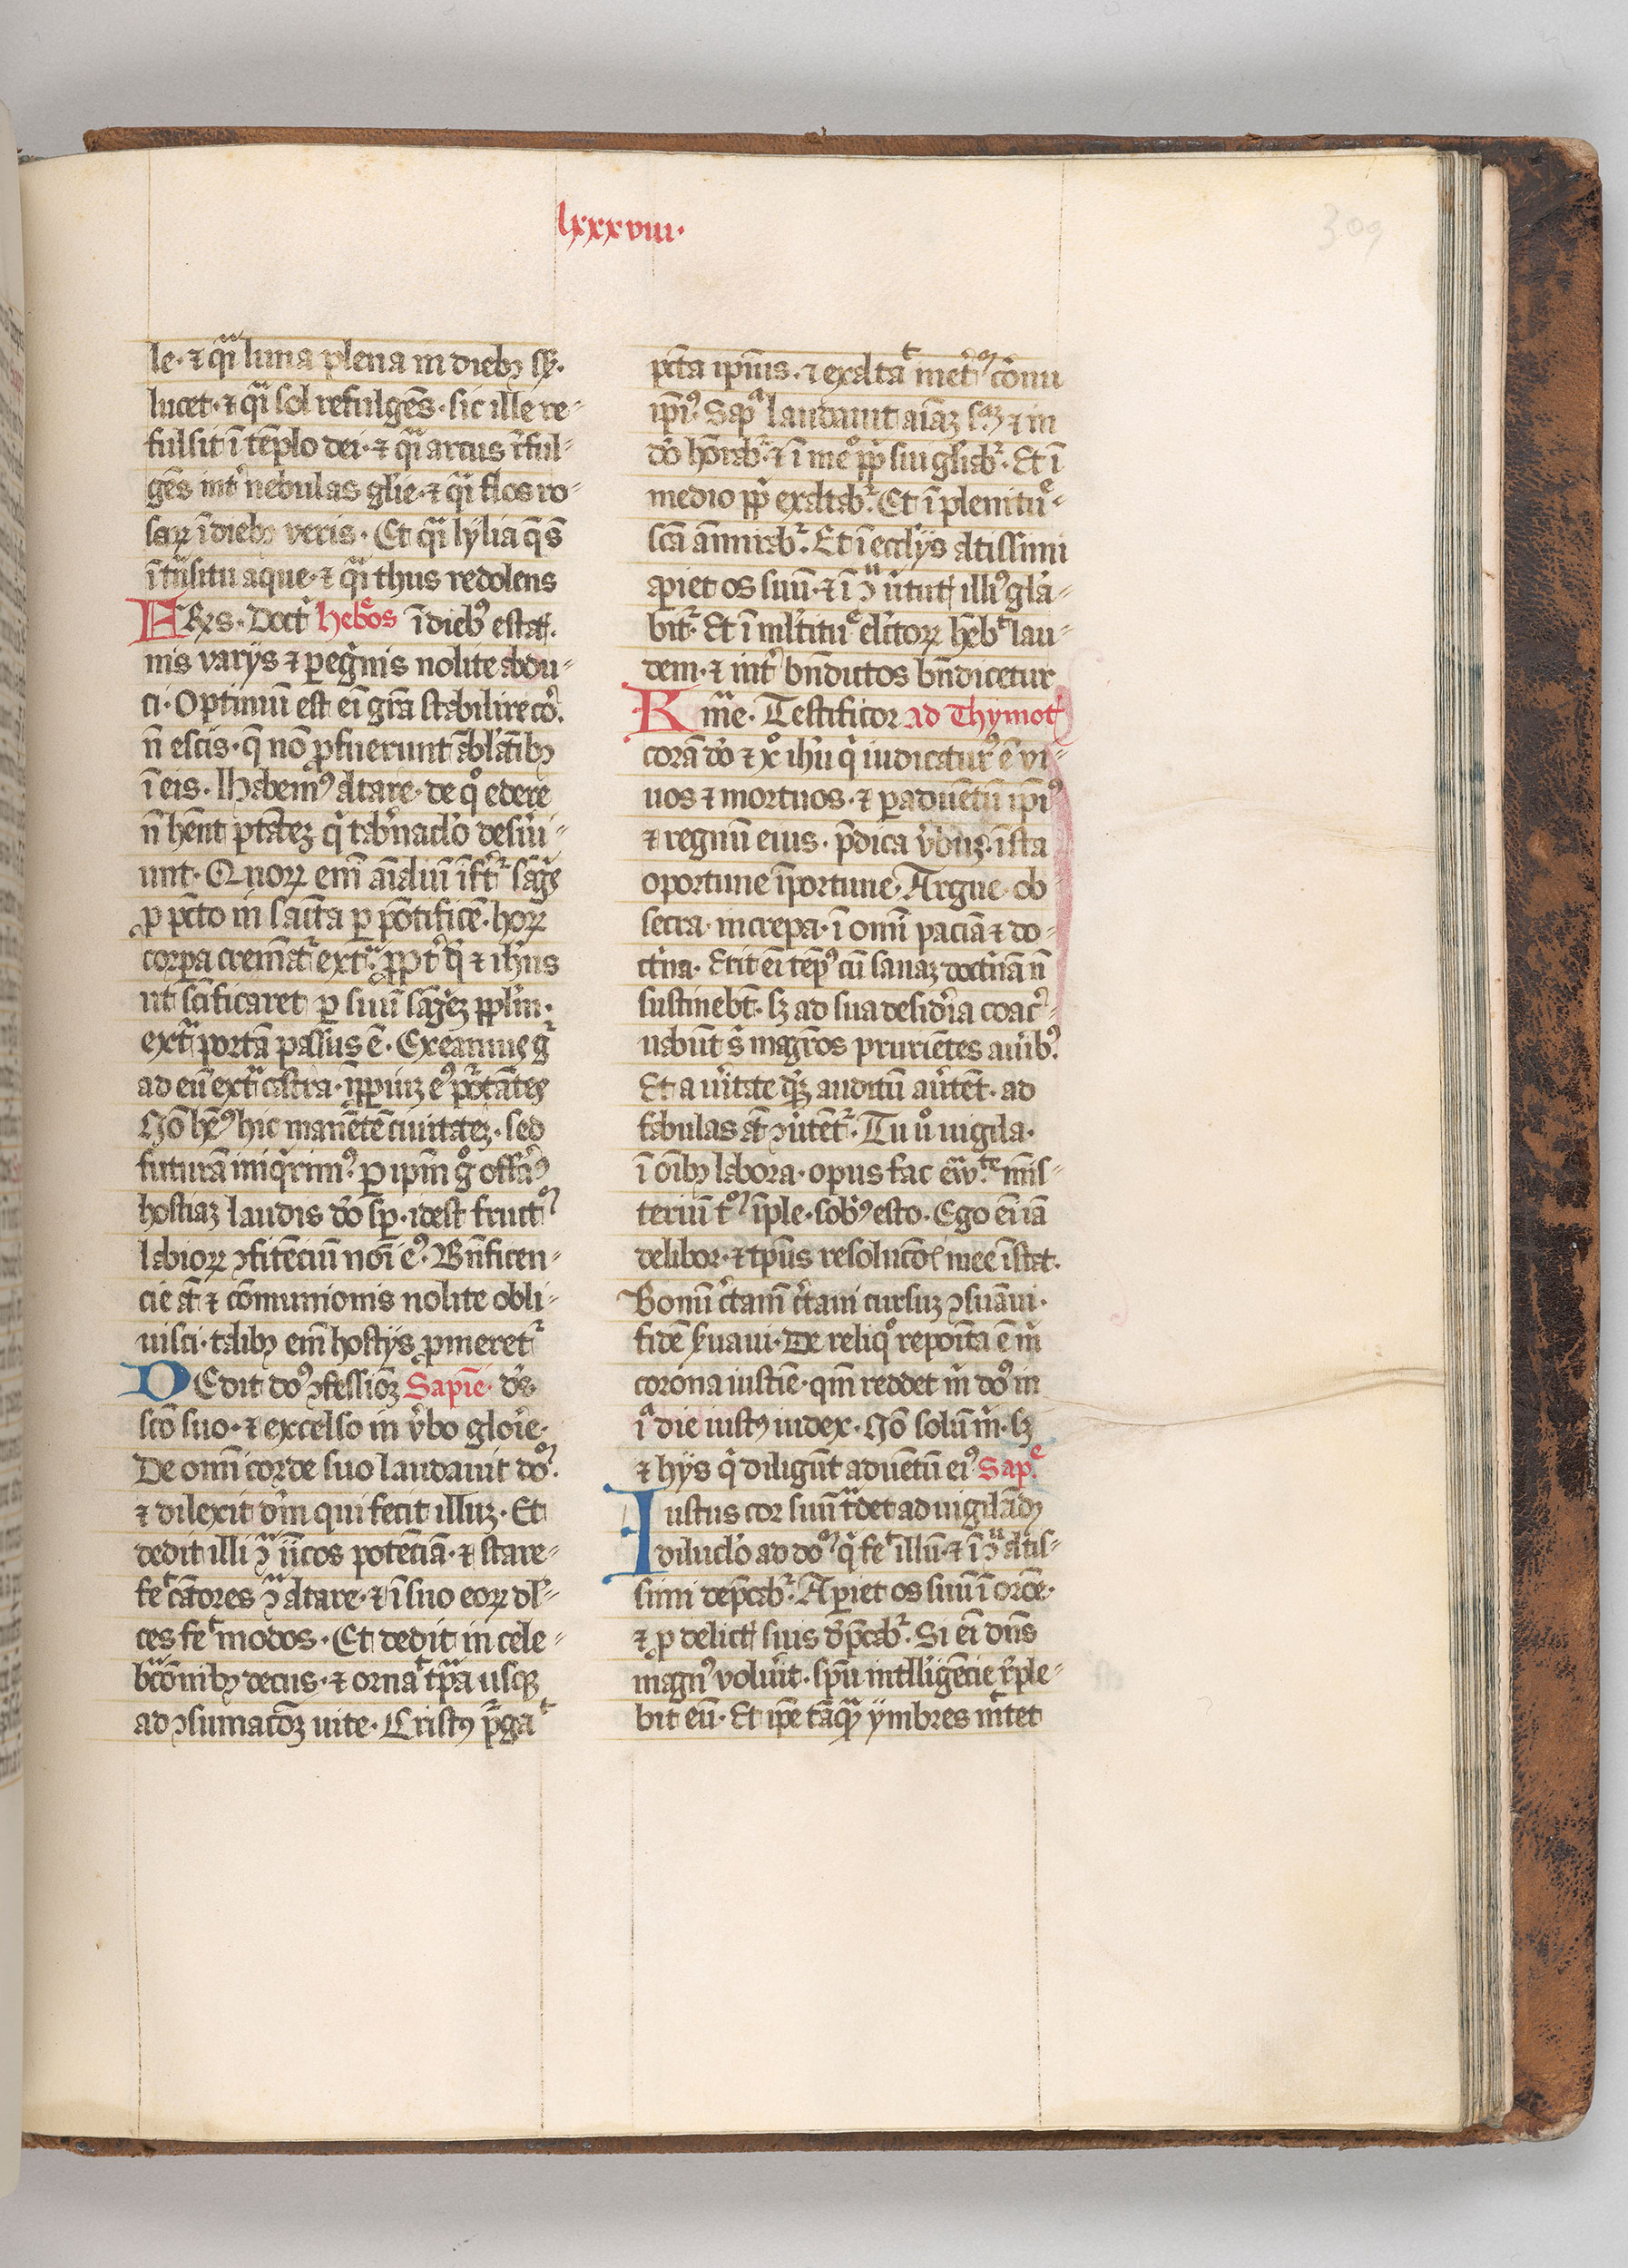 lxxxviii·
309
le· ⁊ qͣi luna plena in diebꝫ ſꝫ·
lucet· ⁊ qͣi ſol refulgēs· ſic ille re-
fulſit ī tēplo dei· ⁊ qͣi arcus r̄ful-
gēs int̉ nebulas gl̄ie· ⁊ qͣi flos ro-
ſaꝝ ī diebꝫ veris· Et qͣi lylia q̄ ſ̄
ī tͣnſitu aque· ⁊ qͣi thus redolens
FRēs· Doct̉ hebͦos ī diebꝰ eſtat·
nis varijs ⁊ ꝑegͥnis nolite abdu-
ci· Optimū eſt ei̅ gr̄a ſtabilire co̓·
n̄ eſcis· q̄ nō ꝓfuerunt āblātibꝫ
ī eis· Habemꝰ altare· de qͦ edere
n̄ hēnt ptātez qͥ tabͤrnacl̓o deſ̓ui-
unt· Quoꝝ em̄ aīaliū īfert̉ ſāgͥs
ꝓ pctō in ſancta ꝑ pōtificē· hoꝝ
corꝑa cremāt̉ extͣ· ꝓpt̉ q̄ ⁊ ih̄us
ut ſc̄ificaret ꝑ ſuū ſāgͥez pplm̄·
extͣ portā paſſus ē· Exeamus gͥ
ad eū extͣ caſtra· īpꝑiuz eꝰ portātes
Nō hēꝰ hic manētē ciuitatez· ſed
futurā inqͥrimꝰ· ꝑ ipm̄ gͦ offāꝰ
hoſtiaz laudis dō ſp̄· ideſt fructͫ
labioꝝ ꝯfitēciū noī eꝰ· Bn̄ficen-
cie āt ⁊ cōmunionis nolite obli-
uiſci· talibꝫ em̄ hoſtijs ꝓmeret̉
DEdit doꝰ ꝯfeſſioēz Sapīe· ds̄
ſcō ſuo· ⁊ excelſo in v̓bo glorie·
De omī corde ſuo laudauit doͫ·
⁊ dilexit dm̄ qui fecit illuz· Et
dedit illi ꝯͣ ijīcos potēciā· ⁊ ſtare-
feͨ cātores ꝯͣ altare· ⁊ ī ſuo eoꝝ dl̓-
ces feͨ modos· Et dedit in cele-
bͣcōnibꝫ decus· ⁊ ornaͭ tp̄a uſqꝫ
ad ꝯſumacōꝫ uite· Criſtꝰ p̄gaͭ
pctā ipīus· ⁊ exaltaͭ met̉ͫ cōrnu
ipīꝰ Sapͣ laudauit aīaz ſ̄aꝫ ⁊ in
dō hōrabͥ ⁊ ī meͦ ppl̄ ſui gl̄iabͥ· Et ī
medio ppl̄ exaltabͥ· Et ī plenituͤ-
ſcā āmirabͥ· Et ī eccl̄ijs altiſſimi
aꝑiet os ſuū· ⁊ ī ꝯͣ v̓tutꝭ illiꝰ gl̓a-
bit̉· Et ī ml̓tituͤ el̓ctoꝝ hēbͭ lau-
dem· ⁊ int̉ bn̄dictos bn̄dicetur
Kͫe· Teſtificor ad Thymot̉
corā dō ⁊ xͦ ih̄u qͥ iudicaturꝰ ē vi-
uos ⁊ mortuos· ⁊ ꝑ aduētū ipīꝰ
⁊ regnū eius· p̄dica v̓buꝫ· īſta
oportune īportune· Argue· ob-
ſecra· increpa· ī omī paciā ⁊ do-
ctͥna· Erit ei̅ tēpꝰ cū ſanaz doctͥnā n̄
ſuſtinebt̄· ſꝫ ad ſua deſidͤria coac̓-
uabūt ſ̓ magͥos pruriētes aurībꝰ·
Et a v̓itate qͥꝫ auditū av̓tēt· ad
fabulas āt ꝯv̓tēt̉· Tu v̊ uigila·
ī oībꝫ labora· opus fac ewͣ·ͭͤ mīſ-
teriū tͫ īple· ſobͥꝰ eſto· Ego ei̅ iā
delibor· ⁊ tp̄us reſolucōīs mee īſtat·
Bonū c̓tam̄ c̓taui curſuz ꝯſūaui·
fidē ẜuaui· De reliqͦ repoīta ē m̓
corona iuſtīe· qm̄ reddet m̓ doꝰ in
iͣ die iuſtꝰ iudex· Nō ſolū m̓· ſꝫ
⁊ hijs qͥ diligūt aduētū eiꝰ Sapͤ·
Iuſtus cor ſuū tͣdet ad uigilādꝫ
diluc̓lo ad doͫ qͥ feͭ illū· ⁊ ī ꝯͣ altiſ-
ſimi dep̄cabͥ· Aꝑiet os ſuū ī or̄one·
⁊ ꝓ delictꝭ ſuis dep̄cabͥ· Si ei̅ dn̄s
magnꝰ volu̓it· ſpū intll̓igēcie r̓ple-
bit eū· Et ip̄e tāqͣꝫ ymbres mͭtet